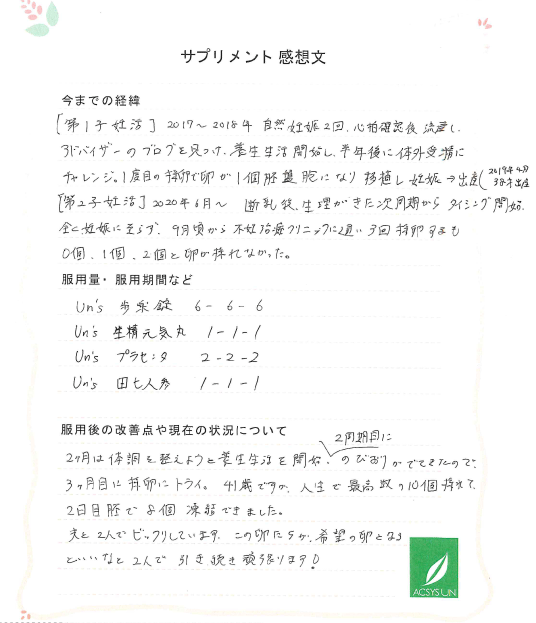 サプリメント 感想文
今までの経緯
[第1子妊活] 2017〜2018年 自然妊娠2回、心拍確認後 流産し、
アドバイザーのブログを見つけ、養生生活開始し、半年後に体外受精に
チャレンジ。1度目の採卵で卵が1個胚盤胞になり 移植し 妊娠→出産(2019年
[第2子妊活] 2020年6月〜 断乳後、生理がきた次周期から タイミング開始、
全く妊娠に至らず、9月頃から 不妊治療クリニックに通い3回 採卵するも
0個、1個、2個と卵が採れなかった。
服用量・服用期間など
Un's 歩楽錠 6-6-6
Un's 生精元気丸 1-1-1
Un's プラセンタ 2-2-2
Un's 田七人参 1-1-1
服用後の改善点や現在の状況について
2周期目に
2ヶ月は体調を整えようと養生生活を開始、のびおりがでてきたので、
3ヶ月目に採卵にトライ。41歳ですが、人生で最高数の10個採れて、
2日目胚で8個 凍結できました。
夫と2人でビックリしています。この卵たちが、希望の卵となる
といいなと 2人で 引き続き頑張ります!
ACSYS UN